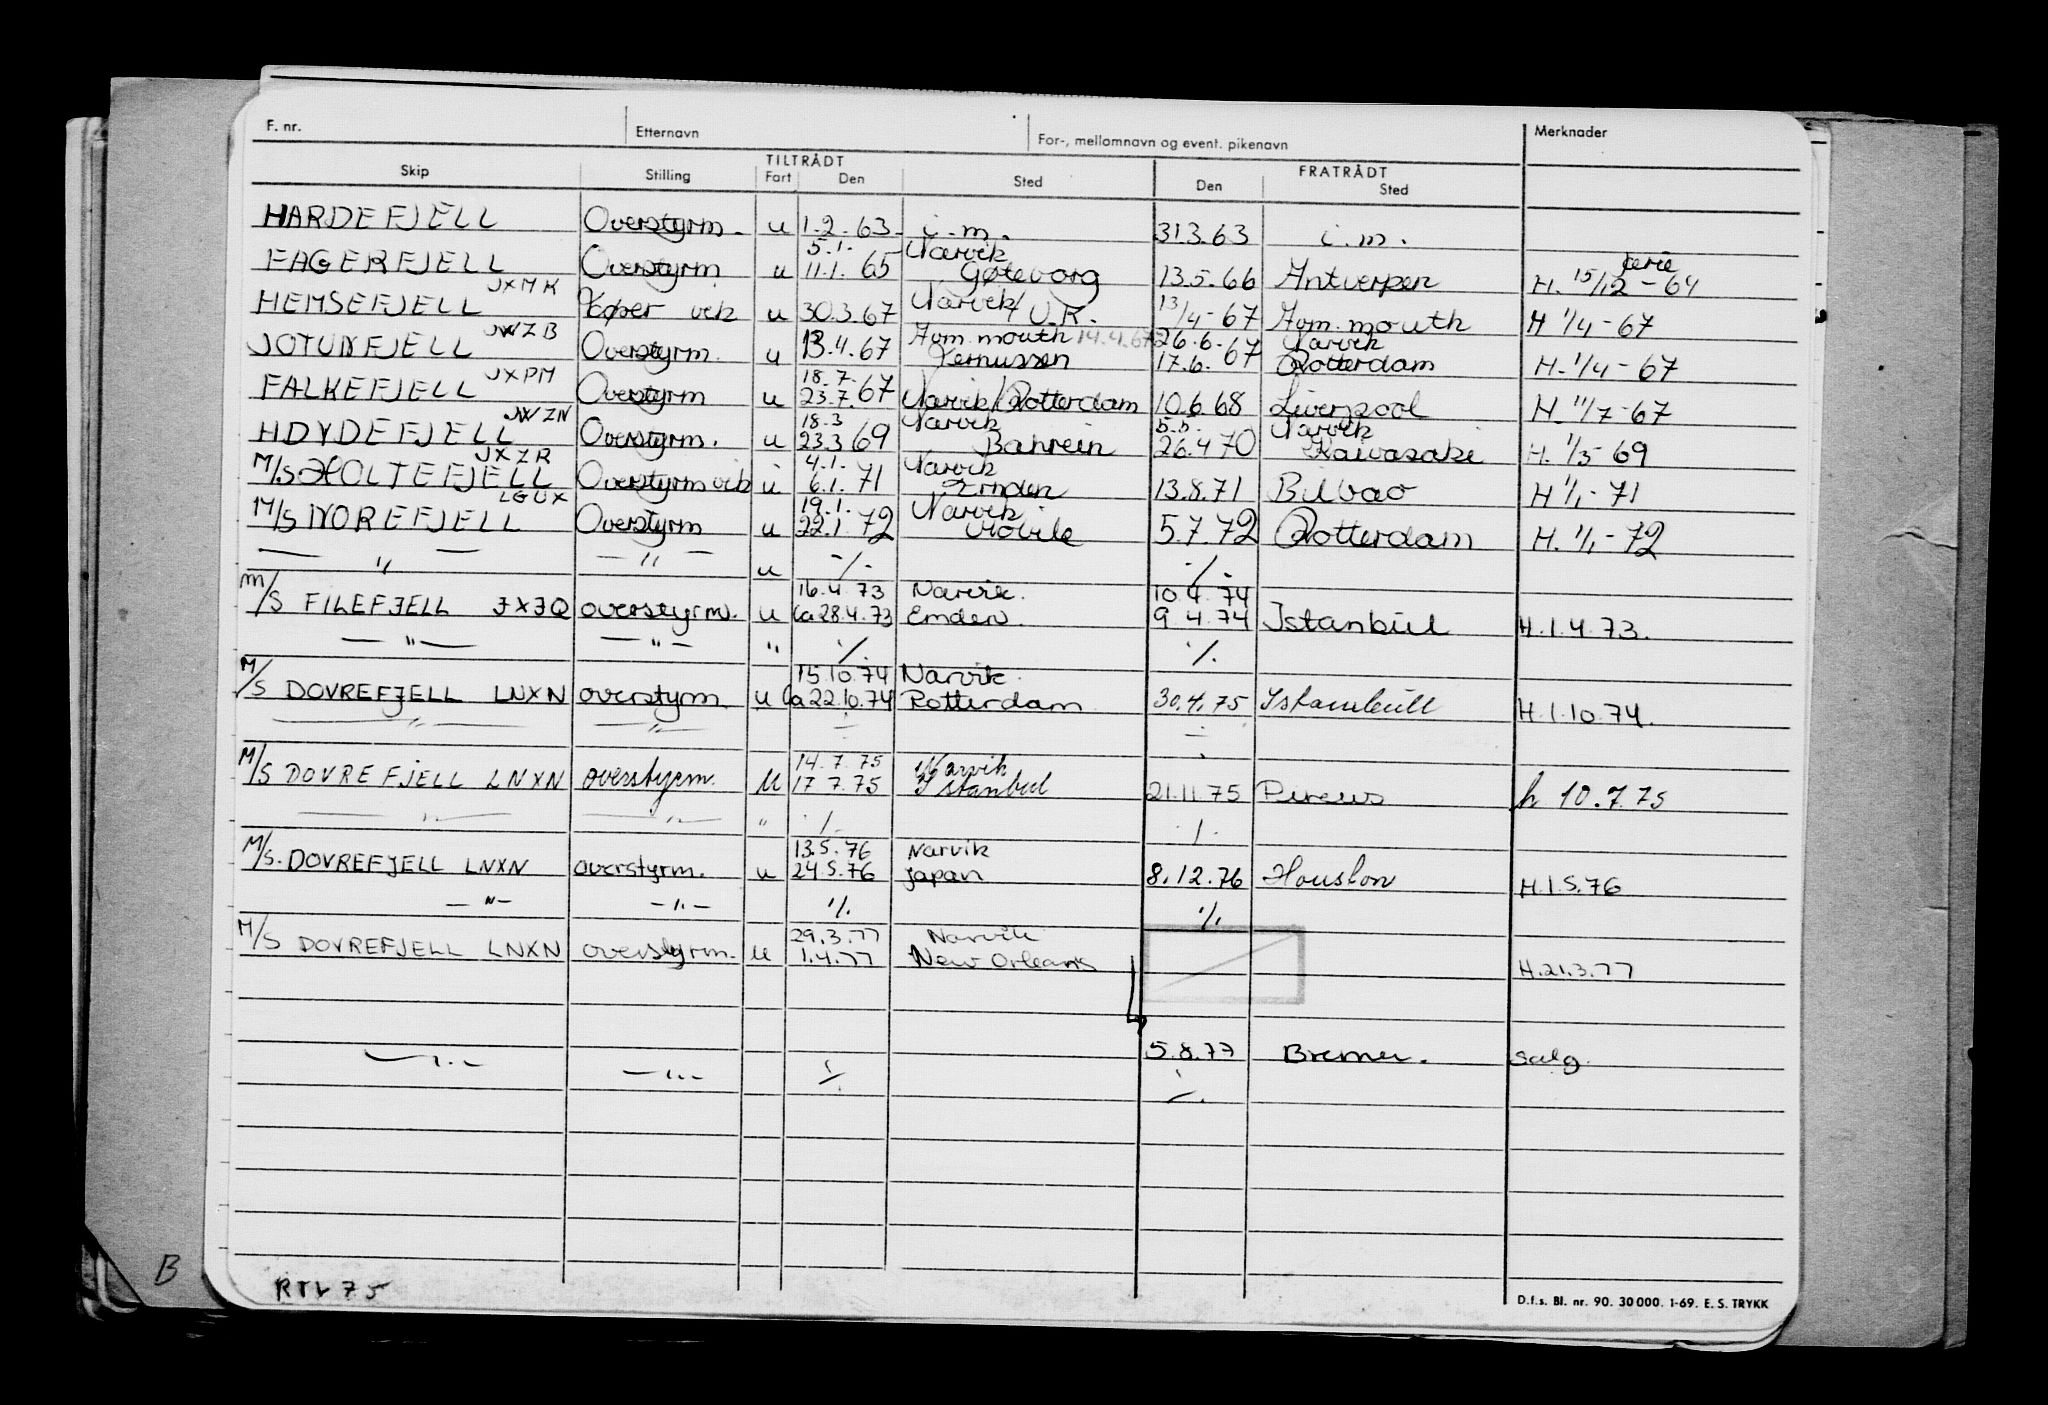 F. nr. Etternavn For-, mellomnavn og event. pikenavn Merknader
TILTRÅDT FRATRÅDT
Skip Stilling Fart Den Sted Den Sted
HARDEFJELL Overstyrm. u 1.2.63. i.m. 31.3.63 i.m.
5.1. Narvik ferie
FAGERFJELL Overstyrm u 11.1. 65 Gøteborg 13.5.66 Antverpen H. 15/12-64
JXMK
HEMSEFJELL vik u 30.3.67 Narvik/U.K. 13/4-67 Imm.mouth H 1/4-67
JWZB Imm.mouth 14.4.67 26.6. Narvik
JOTUNFJELL Overstyrm. u 13.4.67 17.6. 67 Rotterdam H. 1/4-67
JXPM 18.7.
FALKEFJELL Overstyrm u 23.7. 67 Narvik/Rotterdam 10.6.68 Liverpool H. 11/7-67
JWZN 18.3 Narvik 5.5. Narvik
HØYDEFJELL Overstyrm. u 23.3 69 Bahrein 26.4 70 Kawasaki H. 1/3-69
JXZR 4.1. Narvik
M/S HOLTEFJELL Overstyrm vik u 6.1. 71 Emden 13.8.71 Bilbao H 1/1-71
LGUX 19.1. Narvik
M/S NOREFJELL Overstyrm u 22.1. 72 Mobile 5.7.72 Rotterdam H. 1/1-72
— " — — " — u ./. ./.
16.4.73 Narvik. 10.4.74
M/S FILEFJELL JXJQ overstyrm. u la 28.4.73 Emden. 9.4.74 Istanbul H.1.4.73.
— " — — " — " ./. ./.
15.10.74 Narvik.
M/S DOVREFJELL LNXN overstyrm. u la 22.10.74 Rotterdam 30.4.75 Istambull H.1.10.74.
— " — — " —
14.7.75 Narvik
M/S DOVREFJELL LNXN overstyrm. u 17 7.75 Istanbul 21.11.75 Pireus h 10.7.75
— " — — " — " ./. ./.
13.5.76 Narvik
M/S. DOVREFJELL LNXN overstyrm. u 24.5.76 Japan 8.12.76 Houston H.1.5.76
— " — — " — ./. ./.
29.3.77 Narvik
M/S DOVREFJELL LNXN overstyrm. u 1.4.77 New Orleans H.21.3.77
5.8.77 Bremen. salg.
— " — — " — ./. ./.
B
RTV 75
D.f.s. Bl. nr. 90. 30000. 1-69. E. S. TRYKK